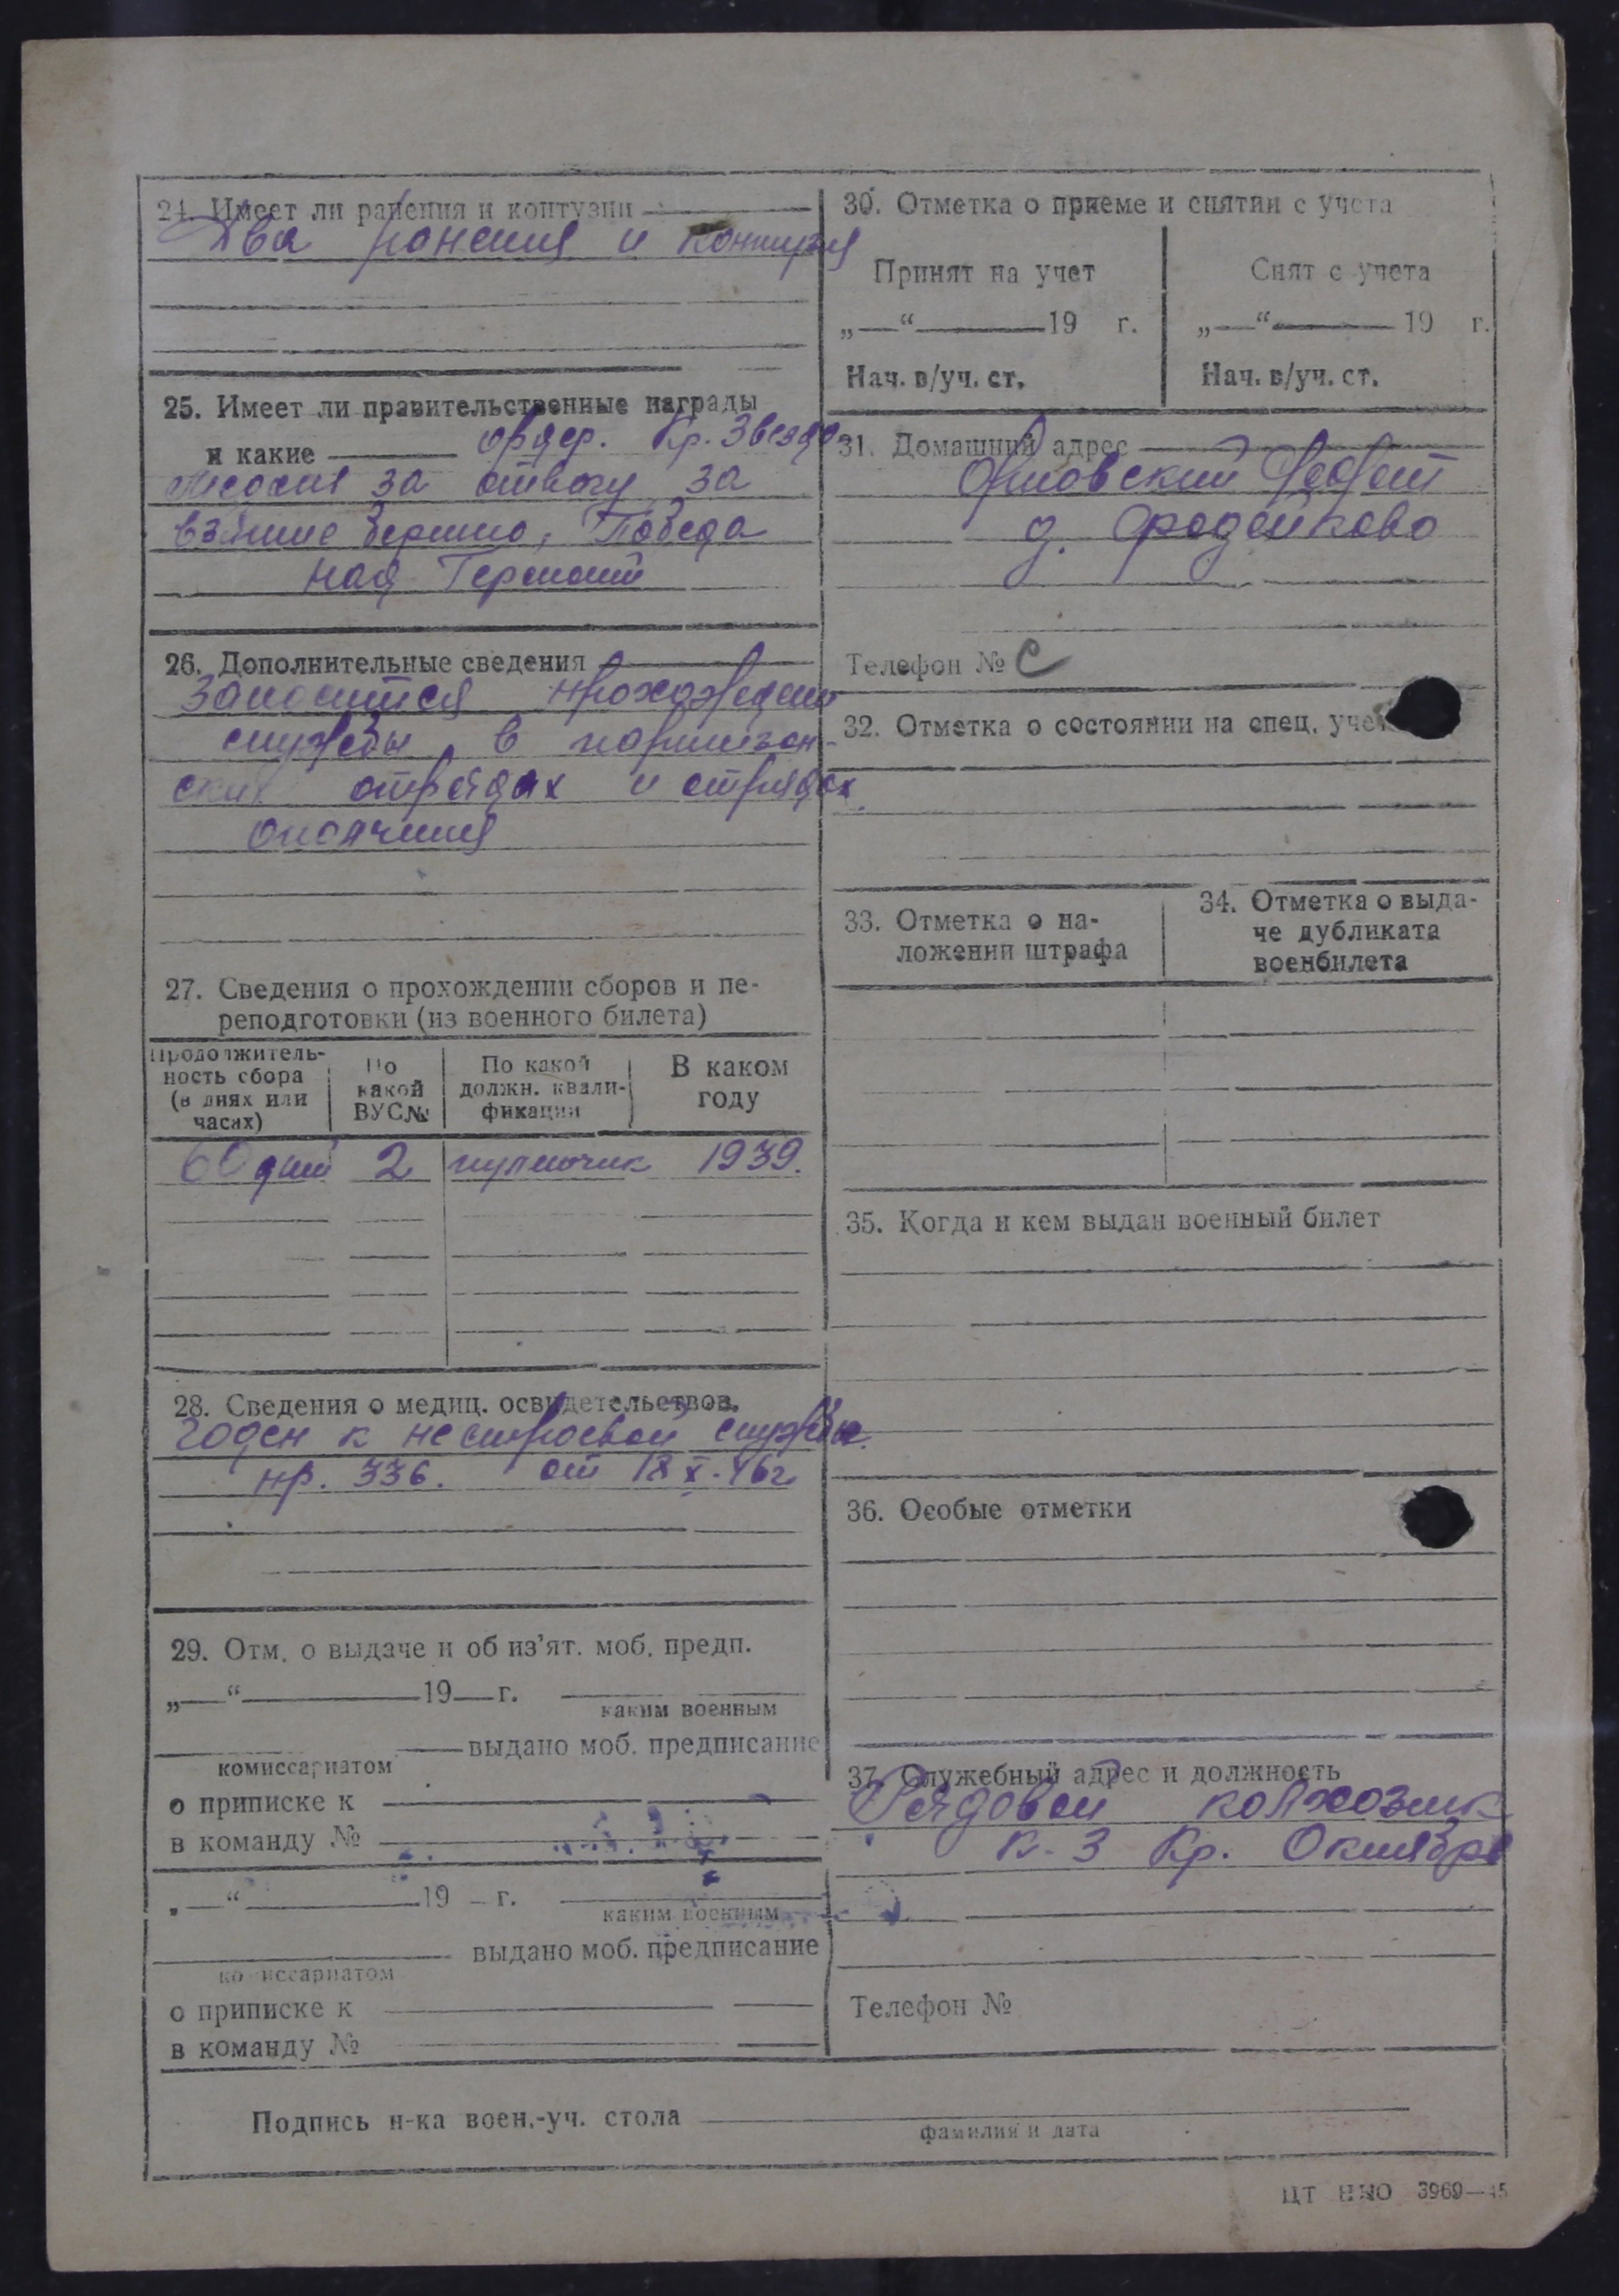 24. Имеет ли ранения и контузии
Два ранения и контузия
25. Имеет ли правительственные награды
и какие ордер. Кр. Звезда
Медали за отвагу за
взятие Берлина, Победа
над Германи
26. Дополнительные сведения
прохождени
службы в партизан-
ских отрядах и отрядах
ополчения
27. Сведения о прохождении сборов и пе-
реподготовки (из военного билета)
Продолжитель-
ность сбора
(в днях или
часах)
По
какой
ВУС№
По какой
должн. квали-
фикации
В каком
году
60 дней 2 1939.
28. Сведения о медиц. освидетельствов.
Годен к нестроевой службе.
пр. 336. от 18 X-46г
29. Отм. о выдаче и об из'ят. моб. предп.
„—“ 19 г.
каким военным
выдано моб. предписание
комиссариатом
о приписке к
в команду №
„—“ 19 г.
каким военным
выдано моб. предписание
комиссариатом
о приписке к
в команду №
30. Отметка о приеме и снятии с учета
Принят на учет
„—“ 19 г.
Нач. в/уч. ст.
Снят с учета
„—“ 19 г.
Нач. в/уч. ст.
31. Домашний адрес
д.
Телефон № С
32. Отметка о состоянии на спец. уче
33. Отметка о на-
ложении штрафа
34. Отметка о выда-
че дубликата
военбилета
35. Когда и кем выдан военный билет
36. Особые отметки
37. Служебный адрес и должность
Рядовой колхозник
к-з Кр. Октябрь
Телефон №
Подпись н-ка воен.-уч. стола
фамилия и дата
ЦТ НКО 3969—45